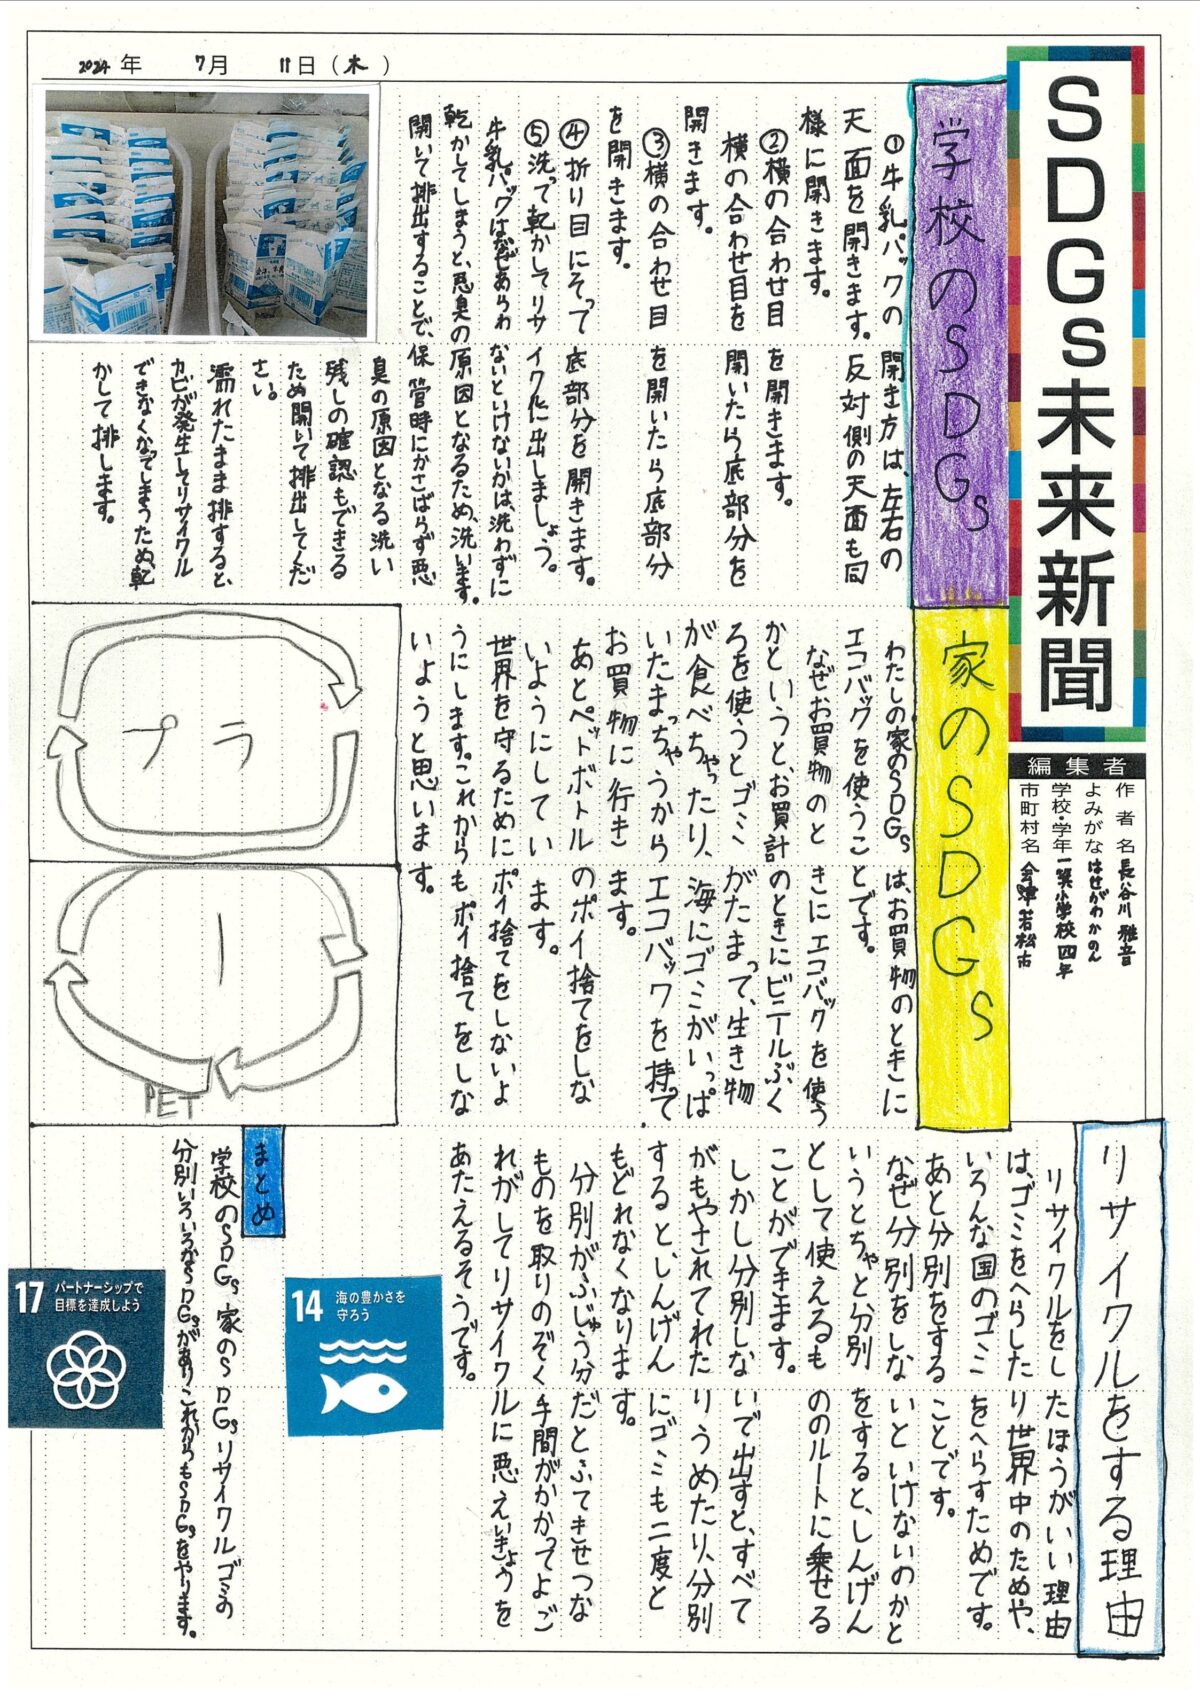 SDGs未来新聞
2024年 7月 11日(木)
編集者
作者名 長谷川 雅音
よみがな はせがわかのん
学校・学年 一箕小学校 四年
市町村名 会津若松市
学校のSDGs
①牛乳パックの開き方は、左右の
天面を開きます。反対側の天面も同
様に開きます。
②横の合わせ目を開きます。
横の合わせ目を開いたら底部分を
開きます。
③横の合わせ目を開いたら底部分
を開きます。
④折り目にそって底部分を開きます。
⑤洗って乾かしてリサイクルに出しましょう。
牛乳パックはなぜあらわないといけないかは、洗わずに
乾かしてしまうと、悪臭の原因となるため、洗います。
開いて排出することで、保管時にかさばらず悪
臭の原因となる洗い
残しの確認もできる
ため開いて排出してくだ
さい。
濡れたまま排すると、
カビが発生してリサイクル
できなくなってしまうため、乾
かして排します。
家のSDGs
わたしの家のSDGsは、お買物のときに
エコバッグを使うことです。
なぜお買物のときにエコバッグを使う
かというと、お買計のときにビニールぶく
ろを使うとゴミがたまって、生き物
が食べちゃったり、海にゴミがいっぱ
いたまっちゃうからエコバックを持って
お買物に行きます。
あとペットボトルのポイ捨てをしな
いようにしています。
世界を守るためにポイ捨てをしないよ
うにします。これからもポイ捨てをしな
いようと思います。
プラ
1
PET
リサイクルをする理由
リサイクルをしたほうがいい理由
は、ゴミをへらしたり世界中のためや、
いろんな国のゴミをへらすためです。
あと分別をすることです。
なぜ分別をしないといけないのかと
いうとちゃと分別をすると、しんげん
として使えるもののルートに乗せる
ことができます。
しかし分別しないで出すと、すべて
がもやされてれたりうめたり、分別
すると、しんげんにゴミも二度と
もどれなくなります。
分別がふじゅう分だとふてきせつな
ものを取りのぞく手間がかかってよご
れがしてリサイクルに悪えいきょうを
あたえるそうです。
まとめ
学校のSDGs 家のSDGsリサイクルゴミの
分別いろいろなSDGsがありこれからもSDGsをやります。
14 海の豊かさを
守ろう
17 パートナーシップで
目標を達成しよう